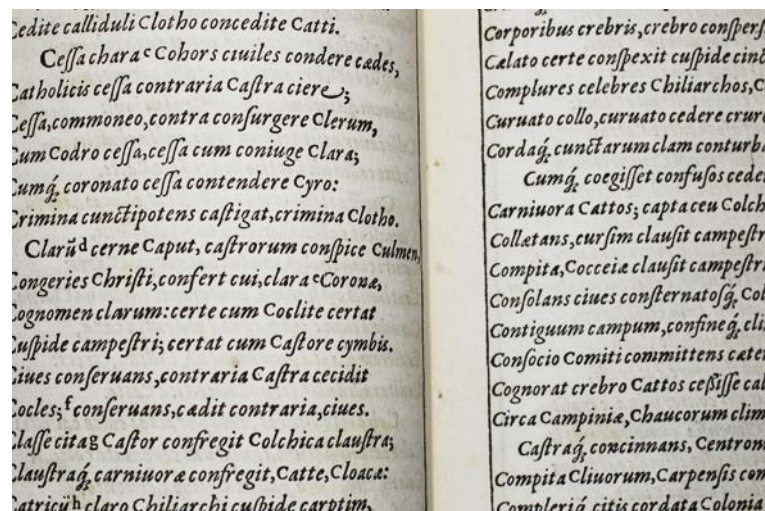 Cedite calliduli Clotho concedite Catti.
Ceſſa chara c Cohors ciuiles condere cædes,
Catholicis ceſſa contraria Caſtra ciere;
Ceſſa,commoneo,contra conſurgere Clerum,
Cum Codro ceſſa,ceſſa cum coniuge Clara;
Cumq́; coronato ceſſa contendere Cyro:
Crimina cunctipotens caſtigat,crimina Clotho.
Clarũ d cerne Caput, caſtrorum conſpice Culmen,
Congeries Chriſti,confert cui,clara e Coronæ,
Cognomen clarum:certe cum Coclite certat
Cuſpide campeſtri; certat cum Caſtore cymbis.
Ciues conſeruans,contraria Caſtra cecidit
Cocles; f conſeruans,cædit contraria,ciues.
Claſſe cita g Caſtor confregit Colchica clauſtra;
Clauſtraq́; carniuoræ confregit,Catte,Cloacæ:
Catricũ h claro Chiliarchi cuſpide carptim,
Corporibus crebris,crebro
Cælato certe conſpexit cuſpide
Complures celebres Chiliarchos,
Curuato collo,curuato cedere
Cordaq́; cunctarum clam
Cumq́; coegiſſet confuſos
Carniuora Cattos; capta ceu
Collætans,curſim clauſit
Compita,Cocceiæ clauſit
Conſolans ciues conſternatoſq́;
Contiguum campum,confineq́;
Conſocio Comiti committens
Cognorat crebro Cattos ceſsiſſe
Circa Campiniæ,Chaucorum
Caſtraq́; concinnans,
Compita Cliuorum,Carpenſis
Compleriq́; citis cordata Colonia